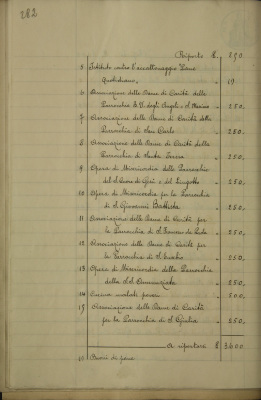 282
Riporto £ 590.
5 Istituto contro l'accattonaggio Pane
quotidiano, " 10
6 Associazione delle Dame di Carità della
Parrocchia degli Angeli " 250.
7 Associazione delle Dame di Carità della
Parrocchia di San Carlo " 250.
8 Associazione delle Dame di Carità della
Parrocchia di Santa Teresa " 250.
9 Opera di Misericordia delle Parrocchie
del S. Cuore di Gesù e del Lingotto " 250.
10 Opera di Misericordia per la Parrocchia
di S. Giovanni Battista " 250.
11 Associazione delle Dame di Carità per
la Parrocchia di S. Francesco da Paola " 250.
12 Associazione delle Dame di Carità per
la Parrocchia di " 250.
13 Opera di Misericordia della Parrocchia
della SS. Annunziata " 250.
14 Cucina malati poveri " 500.
15 Associazione delle Dame di Carità
per la Parrocchia di S. Giulia " 250.
a riportare £ 3600
16 Buoni di pane